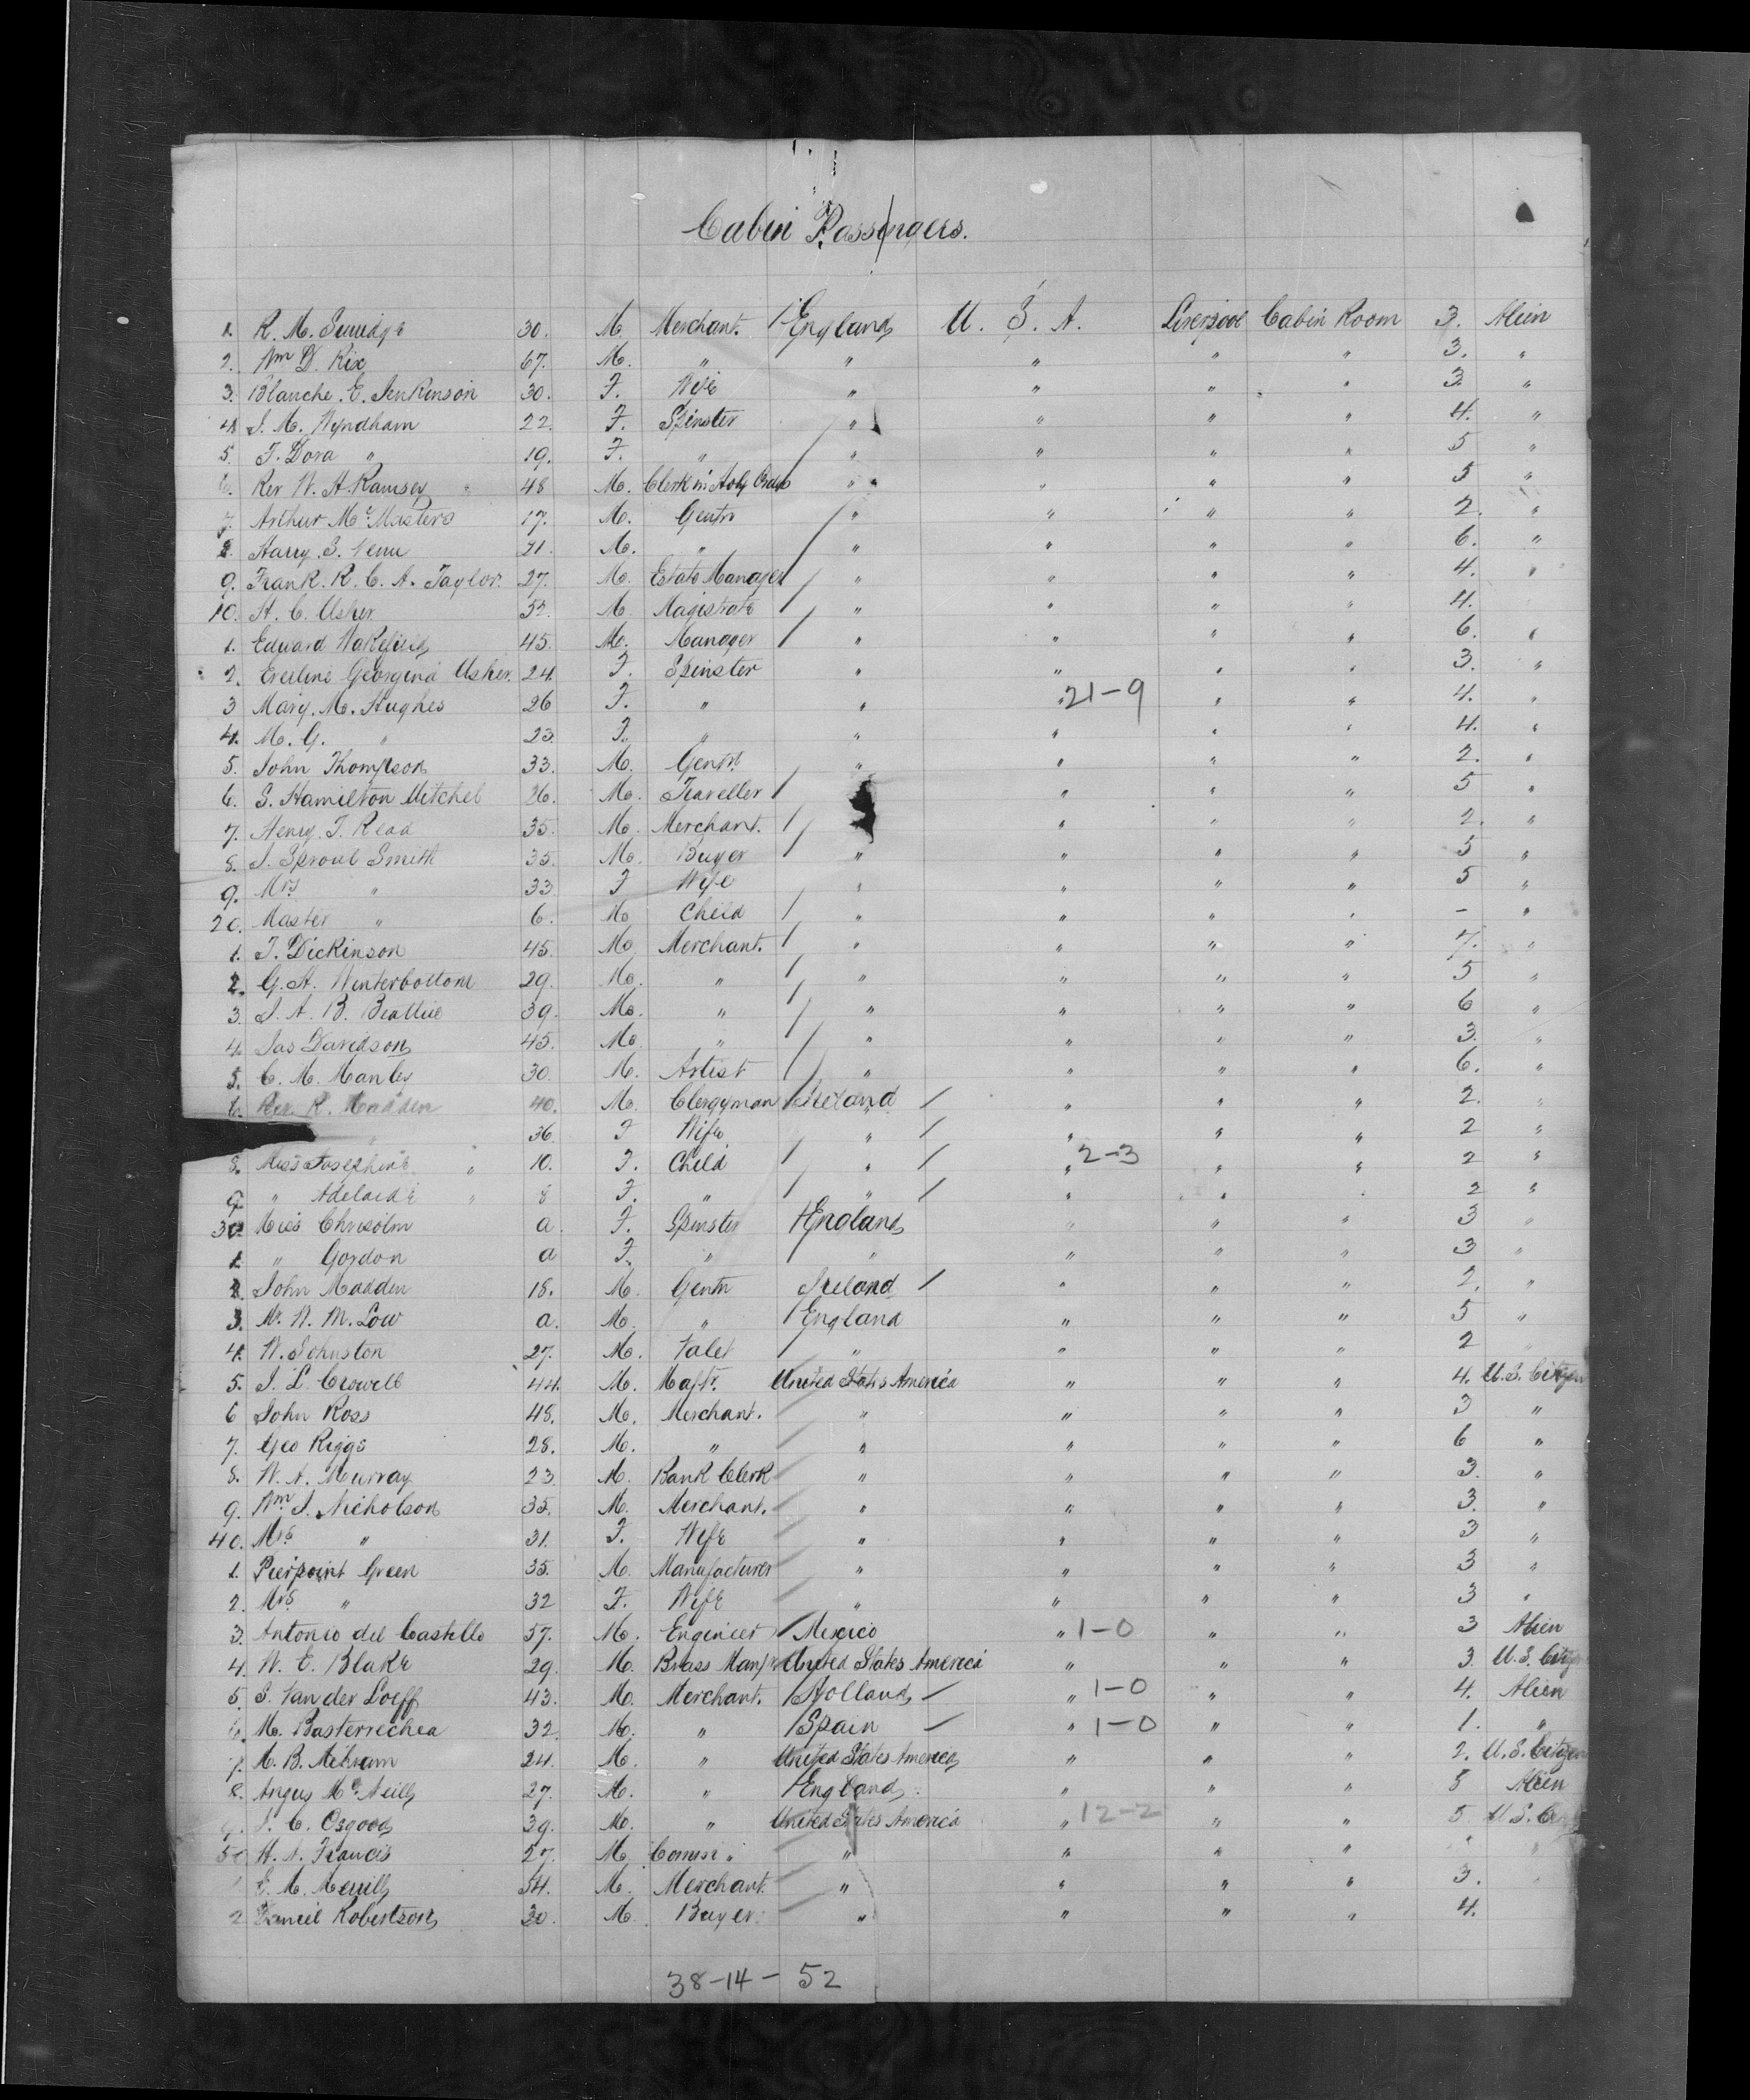 Cabin Passengers.
1. R. M. 30. M Merchant. England U. S. A. Liverpool Cabin Room 3. Alien
2. Wm D. Rix 67. M. " " " " " 3. "
3. Blanche. E. Jenkinson 30. F. Wife " " " " 3. "
4. J. M. Wyndham 22. F. Spinster " " " " 4. "
5. F. Dora " 19. F. " " " " " 5 "
6. Rev W. A. Ramsey 48 M. Clerk in Holy " " " " 5 "
7. Arthur Mc Masters 17. M. Gentn " " " " 2. "
8. Harry. S. 21. M. " " " " " 6. "
9. Frank. R. C. A. Taylor. 27. M. Estate Manager " " " " 4. "
10. H. C. Usher 52. M. Magistrate " " " " 4.
1. Edward Wakefield 45. M. Manager " " " " 6. "
2. Eveline Georgina Usher. 24. F. Spinster " " " " 3. "
3 Mary. M. Hughes 26 F. " " " 21-9 " " 4. "
4. M. G. " 23. F. " " " " " 4. "
5. John Thompson 33. M. Gentn " " " " 2. "
6. S. Hamilton Mitchel 36. M. Traveller " " " 5 "
7. Henry. T. Read 35. M. Merchant. " " " 2. "
8. J. Sproul Smith 35. M. Buyer " " " " 5 "
9. Mrs " 33 F Wife " " " " 5 "
20. Master " 6. M Child " " " " - "
1. T. Dickinson 45. M Merchant. " " " " 7. "
2. G. A. Winterbottom 29. M. " " " " " 5 "
3. J. A. B. Beattie 39. M. " " " " " 6 "
4. Jas Davidson 45. M. " " " " " 3. "
5. C. M. Manly 30. M. Artist " " " " 6. "
6. Rev. R. Madden 40. M. Clergyman Ireland " " " 2. "
36. F Wife " " " " 2 "
8. Miss Josephine " 10. F. Child " " 2-3 " " 2 "
9. " Adelaide " 8 F. " " " " 2 "
30. Miss Chrisolm a. F. Spinster England " " " 3 "
1. " Gordon a F. " " " " " 3 "
2. John Madden 18. M. Gentn Ireland " " " 2. "
3. Mr. W. M. Low a. M. " England " " " 5 "
4. W. Johnston 27. M. Valet " " " " 2 "
5. J. L. Crowell 44. M. Maftr. United States America " " " 4. U.S. Citizen
6 John Ross 48. M. Merchant. " " " " 3 "
7. Geo Riggs 28. M. " " " " " 6 "
8. W. A. Murray 23. M. Bank Clerk " " " " 3. "
9. Wm J. Nicholson 35. M. Merchant. " " " " 3. "
40. Mrs " 31. F. Wife " " " " 3 "
1. Pierpoint Green 35. M. Manufacturer " " " " 3 "
2. Mrs " 32 F. Wife " " " " 3 "
3. Antonio del Castello 57. M. Engineer Mexico " 1-0 " " 3 Alien
4. W. E. Blake 29. M. Brass Manfr United States America " " " 3. U.S. Citizen
5. S. Van der Loeff 43. M. Merchant. Holland " 1-0 " " 4. Alien
6. M. Basterrechea 32. M. " Spain " 1-0 " " 1. "
7. M. B. 24. M. " United States America " " " 2. U.S. Citizen
8. Angus Mc Neill 27. M. " England " " " 5 Alien
9. J. C. Osgood 39. M. " United States America " 12-2 " " 5 U.S.
50 H. N. Francis 27. M. " " " "
E. M. Merrill 54. M. Merchant. " " " " 3.
2 Daniel Robertson 30. M. Buyer. " " " " 4.
38-14-52